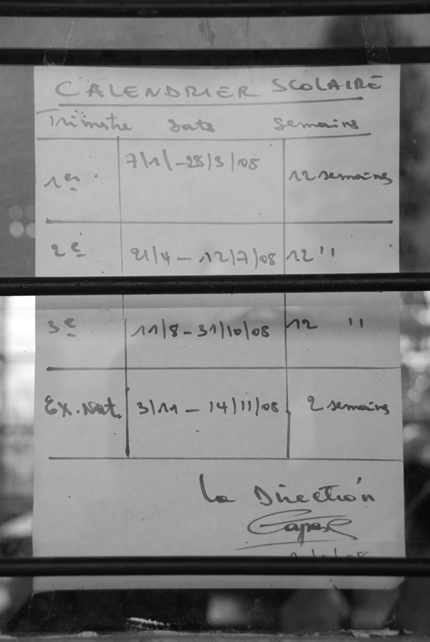 CALENDRIER SCOLAIRE
Trimstre Dats Semains
1er 7/1/-28/3/08 12 semains
2e 21/4 - 12/7/08 12 "
3e 11/8-31/10/08 12 "
Ex.Nat. 3/11 - 14/11/08 2 semains
La Direction